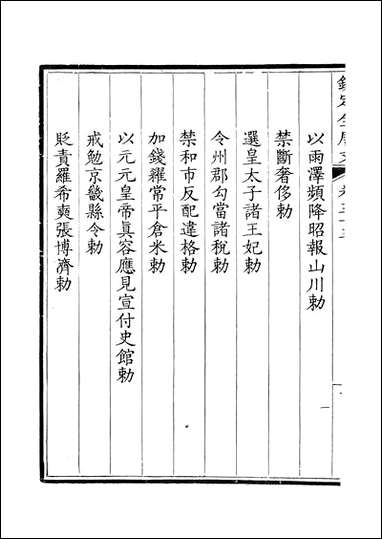 以雨澤頻降昭報山川勅
禁斷奢侈勅
選皇太子諸王妃勅
令州郡勾當諸稅勅
禁和市反配違格勅
加錢糴常平倉米勅
以元元皇帝真容應見宣付史館勅
戒勉京畿縣令勅
貶責羅希奭張博濟勅
一